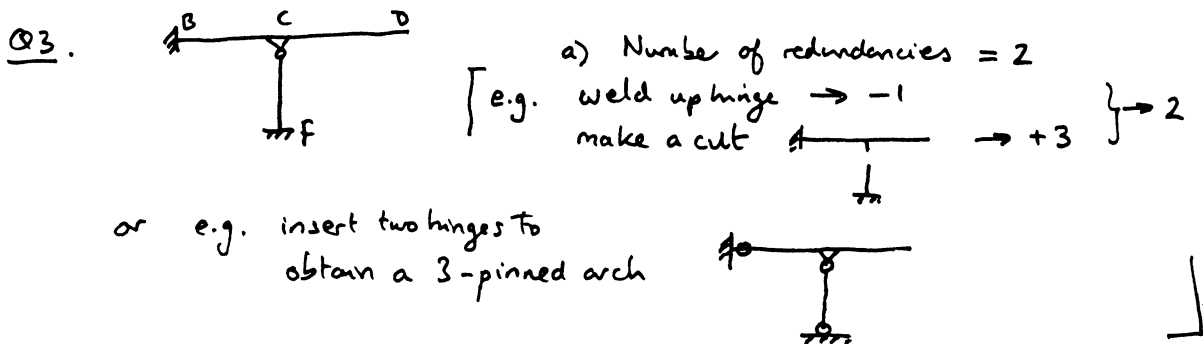 Q3.
B C D
F
a) Number of redundancies = 2
e.g. weld up hinge → -1
make a cut → +3
→ 2
or e.g. insert two hinges to
obtain a 3-pinned arch